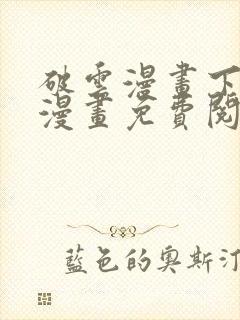 破雲漫畫下
漫畫免費閱
藍色的奧斯汀